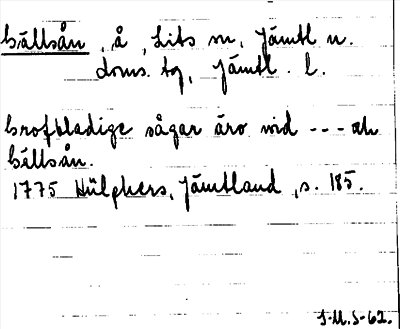 Hällsån, å, Lits sn, Jämtl n.
doms. tg, Jämtl. l.
Grofbladige sågar äro vid --- och
Hällsån.
1775 Hülphers, Jämtland, s. 185.
J-U.S-62.